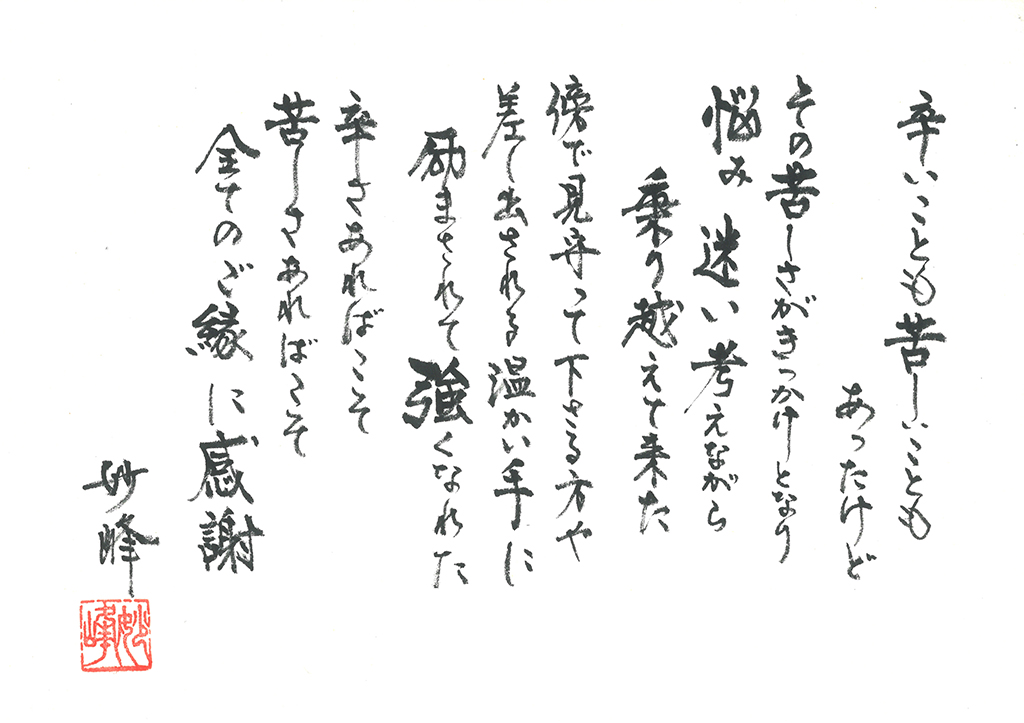 辛いことも苦しいことも
あったけど
その苦しさがきっかけとなり
悩み 迷い 考えながら
乗り越えて来た
傍で見守って下さる方や
差し出される温かい手に
励まされて強くなれた
辛さあればこそ
苦しさあればこそ
全てのご縁に感謝
妙峰
妙峰